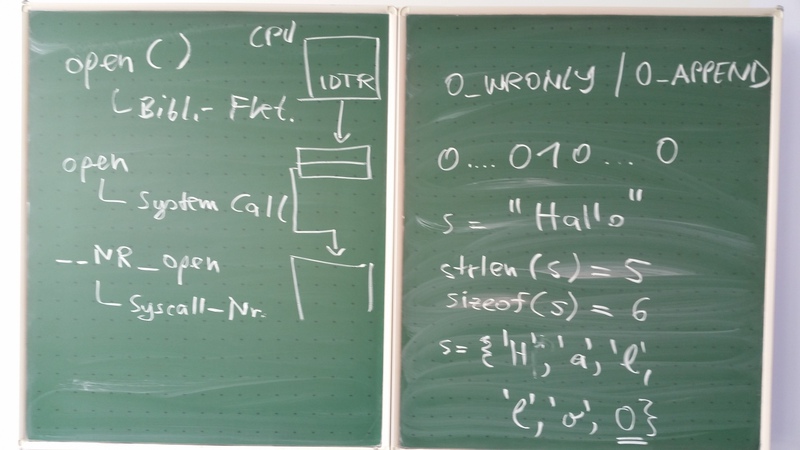 open()
Bibl.- Fkt.
CPU
IDTR
open
System Call
__NR_open
Syscall-Nr.
O_WRONLY | O_APPEND
0....010... 0
s = "Hallo"
strlen(s) = 5
sizeof(s) = 6
s= {'H', 'a', 'l',
'l', 'o', 0}